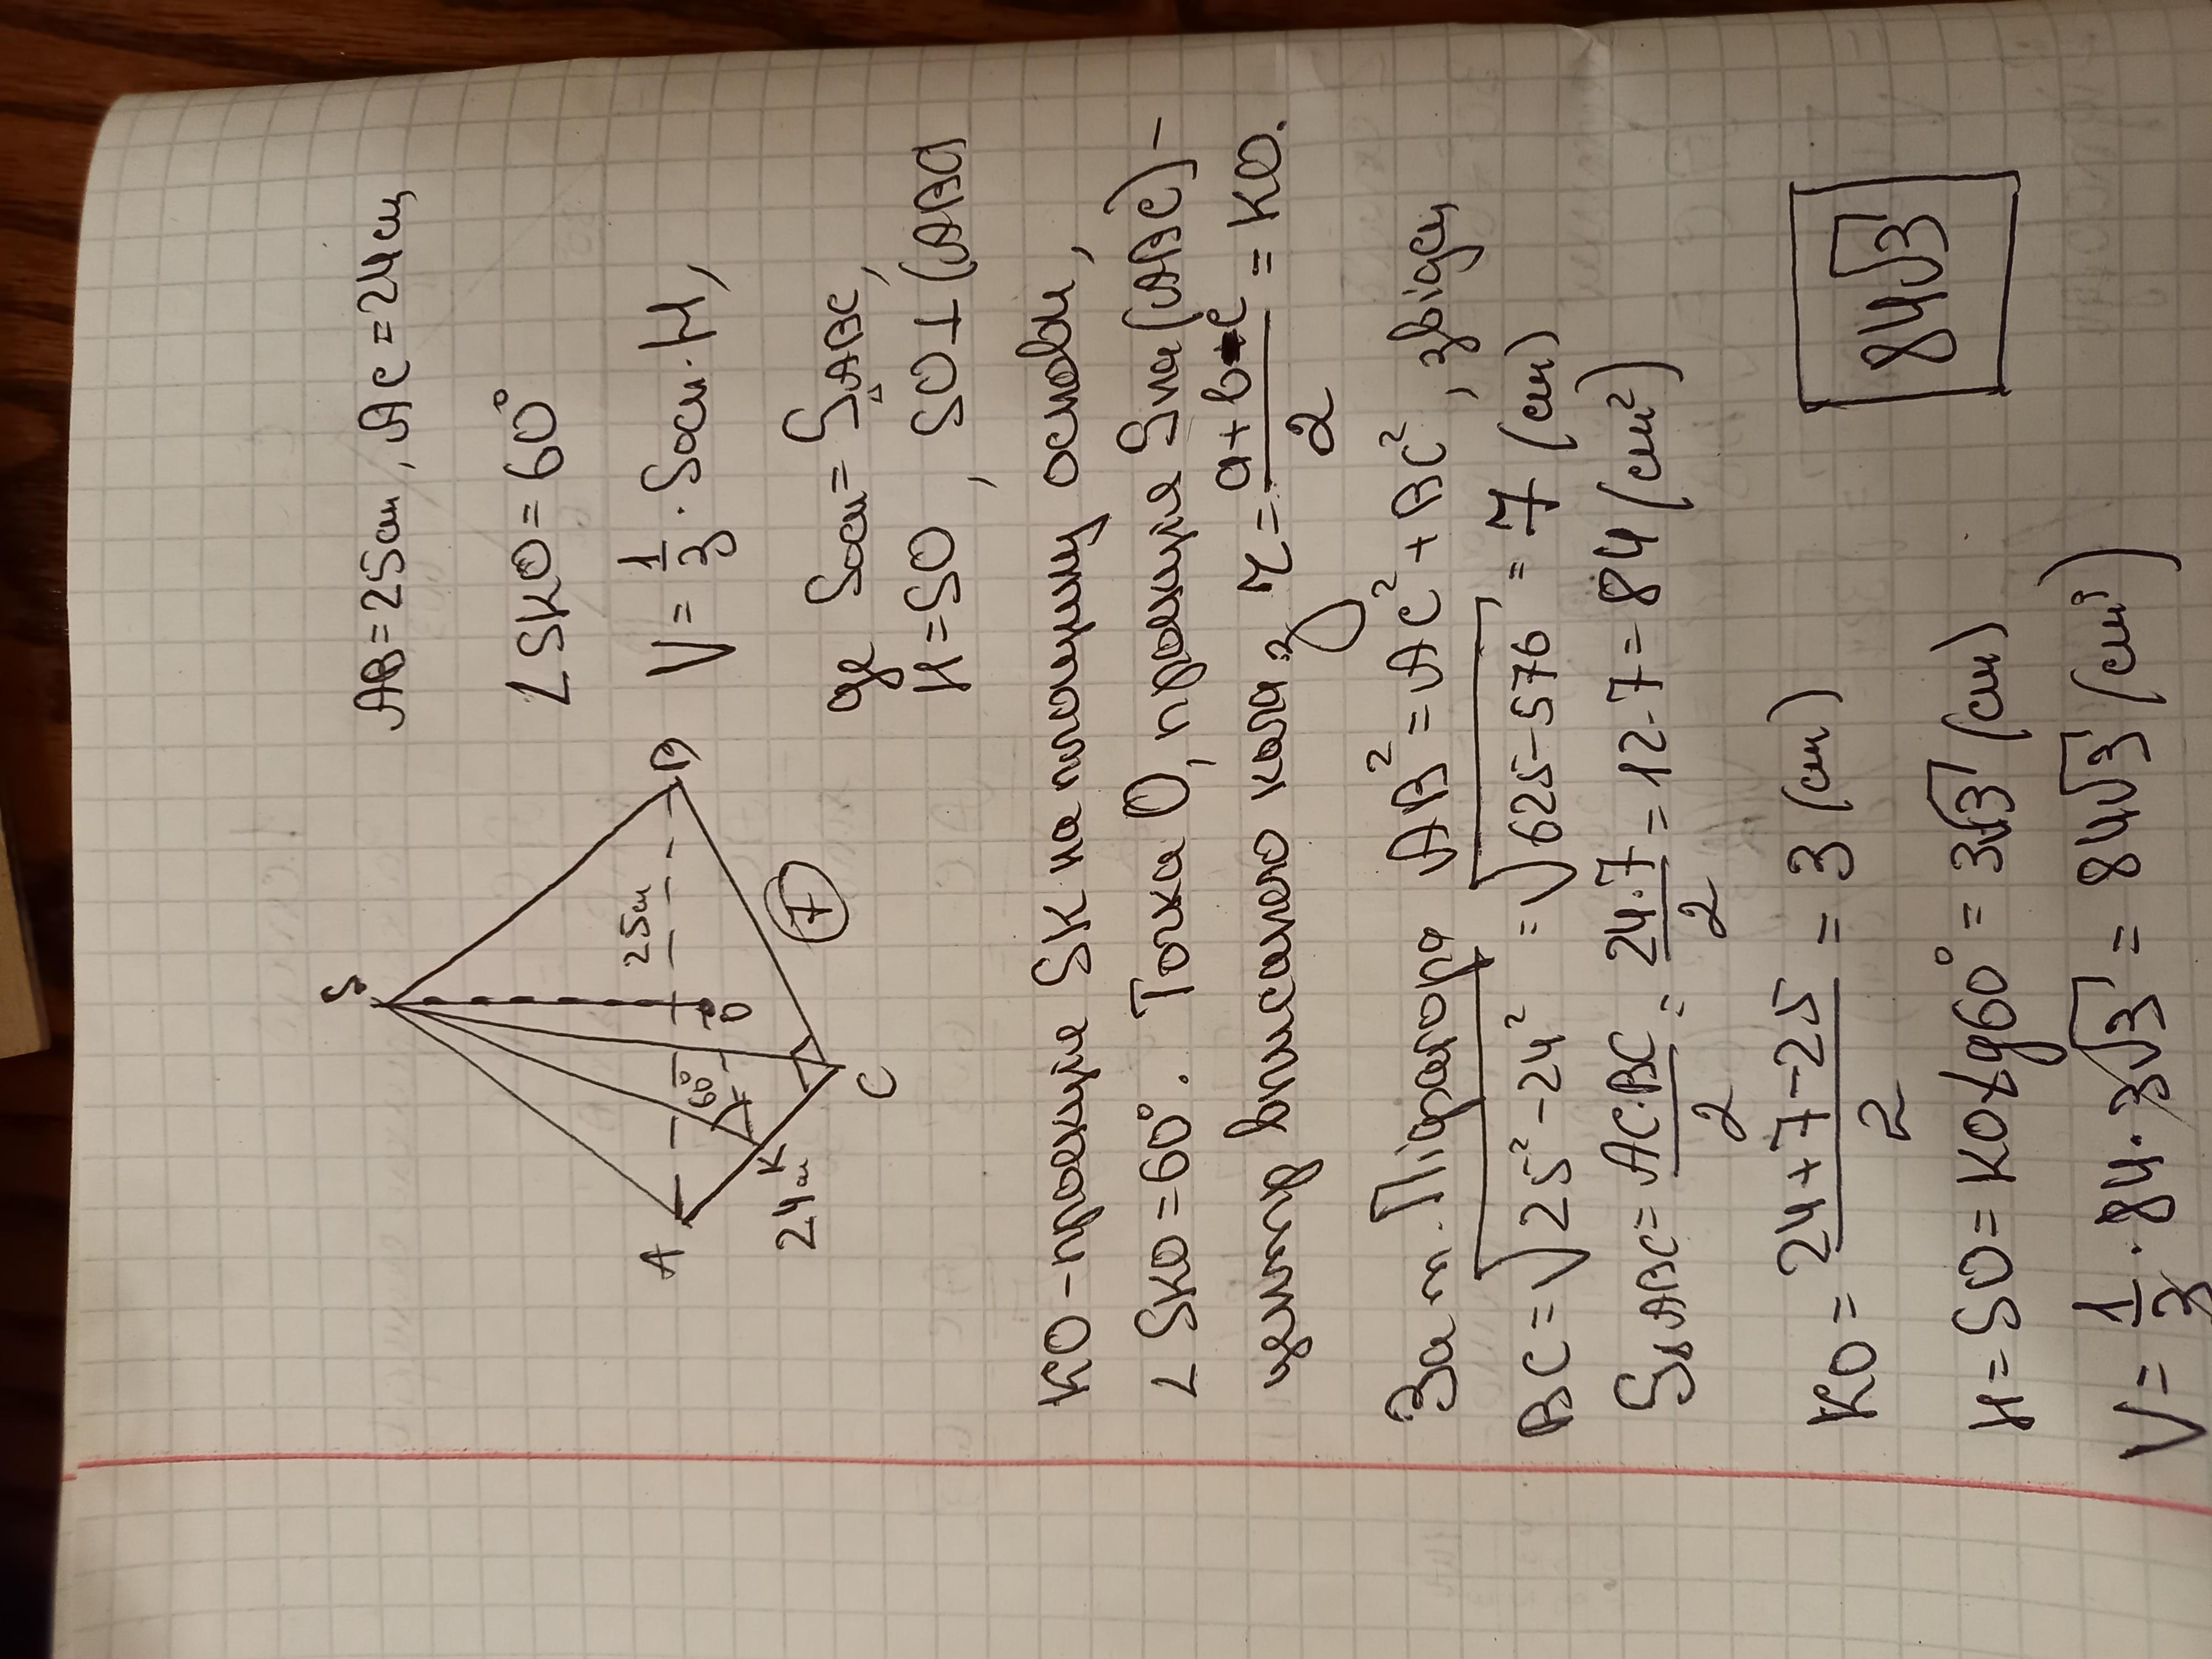 AB = 25см, AC = 24см
∠SKO = 60°
V = 1/3 · Sосн · H,
де Sосн = S△ABC,
H = SO, SO ⊥ (ABC)
S
A
B
C
K
O
60°
25см
24см
7
KO - проекція SK на площину основи,
∠SKO = 60°. Точка O, проекція S на (ABC) -
центр вписаного кола з r = (a + b - c)/2 = KO.
За т. Піфагора AB² = AC² + BC², звідси
BC = √(25² - 24²) = √(625 - 576) = 7 (см)
S△ABC = (AC·BC)/2 = (24·7)/2 = 12·7 = 84 (см²)
KO = (24 + 7 - 25)/2 = 3 (см)
H = SO = KO tg60° = 3√3 (см)
V = 1/3 · 84 · 3√3 = 84√3 (см³)
84√3